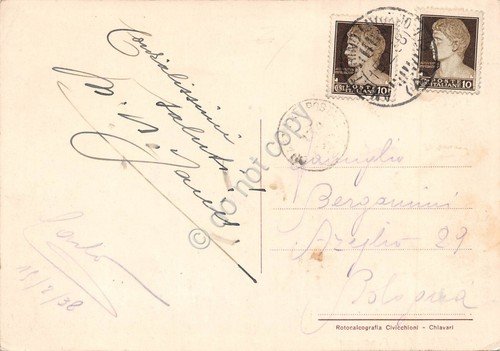 Cordialissimi
saluti!
Carlo
11/2/38
POSTE
ITALIANE
10
POSTE
ITALIANE
10
Famiglia
Bergamini
Azeglio 29
Bologna
Rotocalcografia Civicchioni - Chiavari
© do not copy